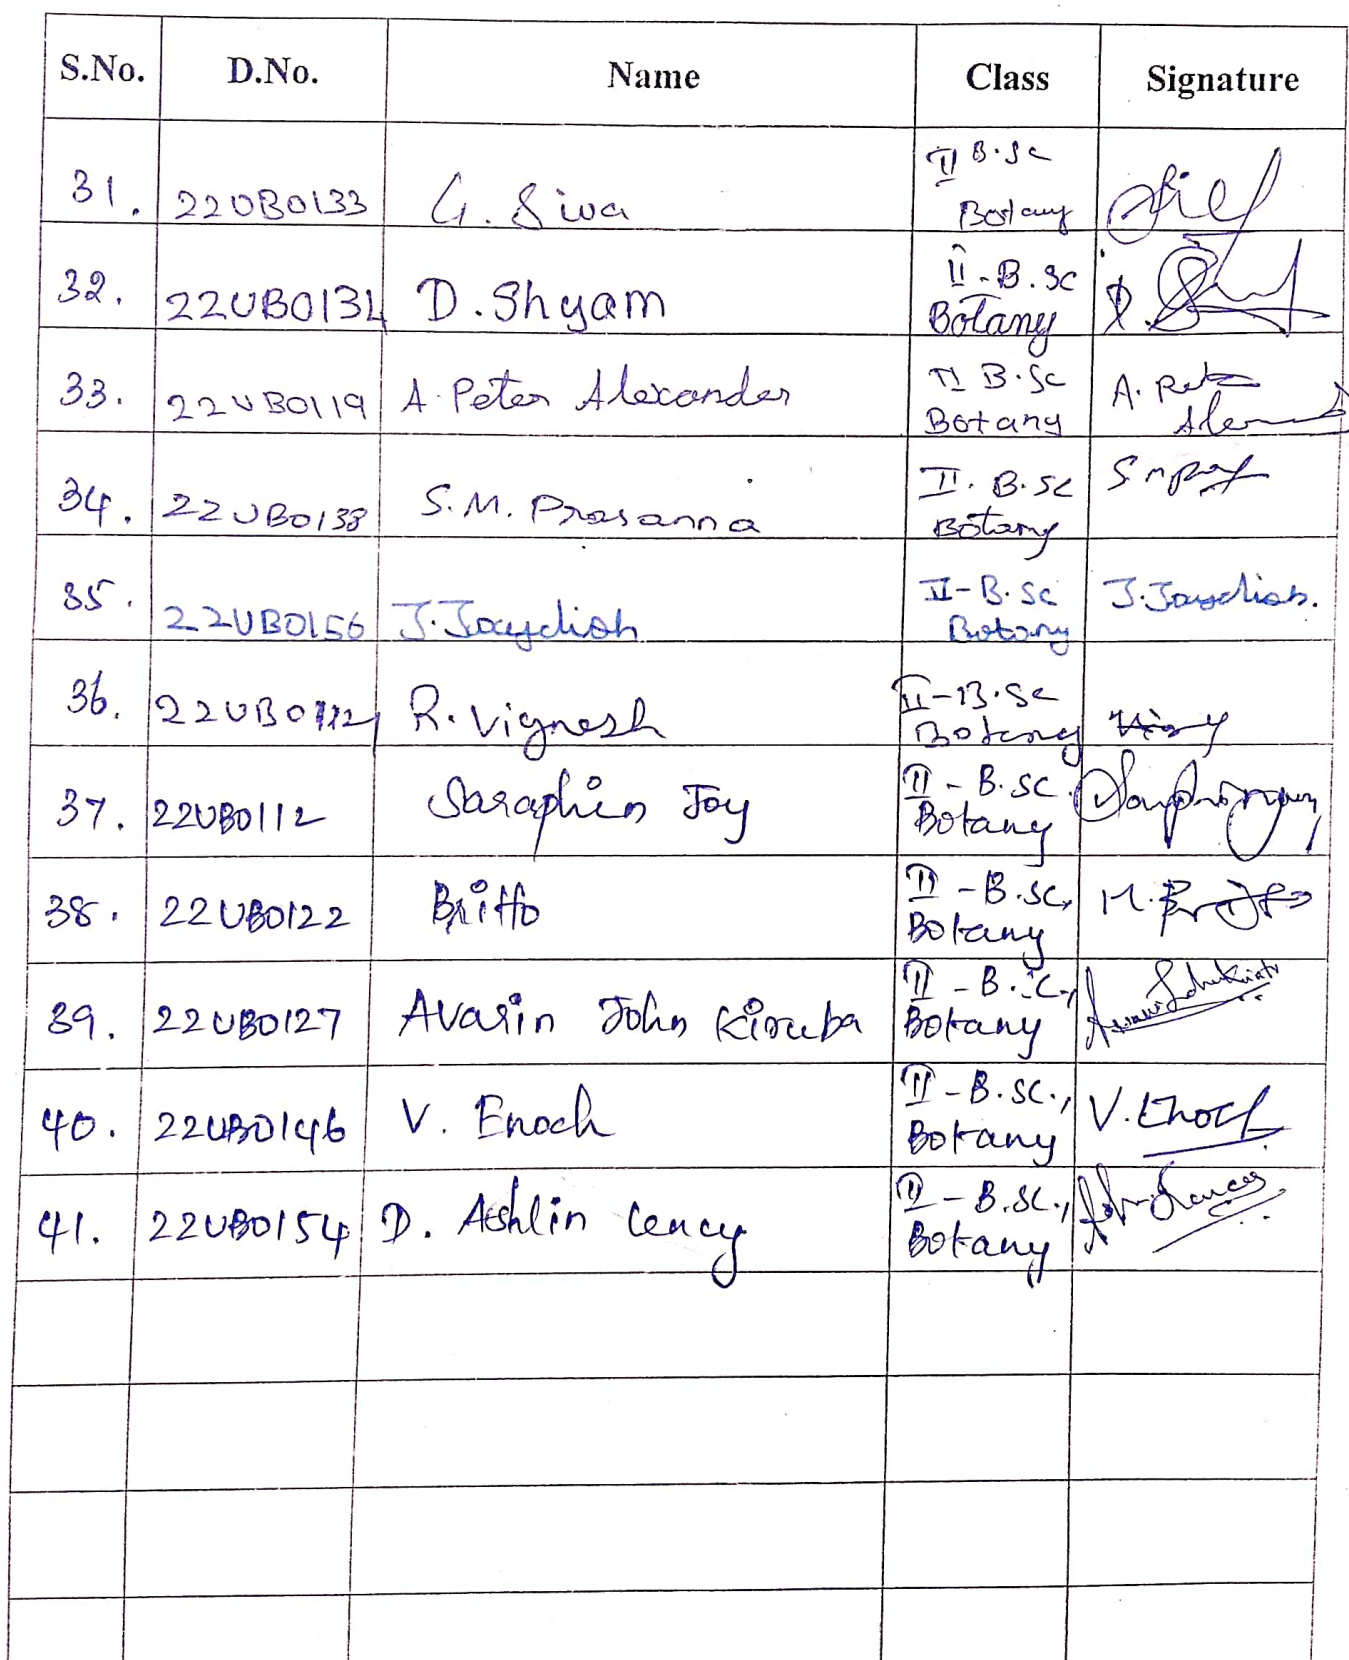 S.No. D.No. Name Class Signature
31. 22UBO133 G. Siva II B.Sc Botany
32. 22UBO134 D. Shyam II - B.Sc Botany
33. 22UBO119 A. Peter Alexander II B.Sc Botany A. Peter
34. 22UBO138 S.M. Prasanna II. B.Sc Botany
35. 22UBO156 J. Jaydish II - B.Sc Botany J. Jaydish.
36. R. Vignesh II - B.Sc Botany
37. 22UBO112 Saraphin Joy II - B.SC. Botany
38. 22UBO122 Britto II - B.SC, Botany M. Britto
39. 22UBO127 Avarin John Kiruba II - B.SC., Botany
40. 22UBO146 V. Enoch II - B.SC., Botany V. Enoch
41. 22UBO154 D. Ashlin Lency II - B.SC., Botany